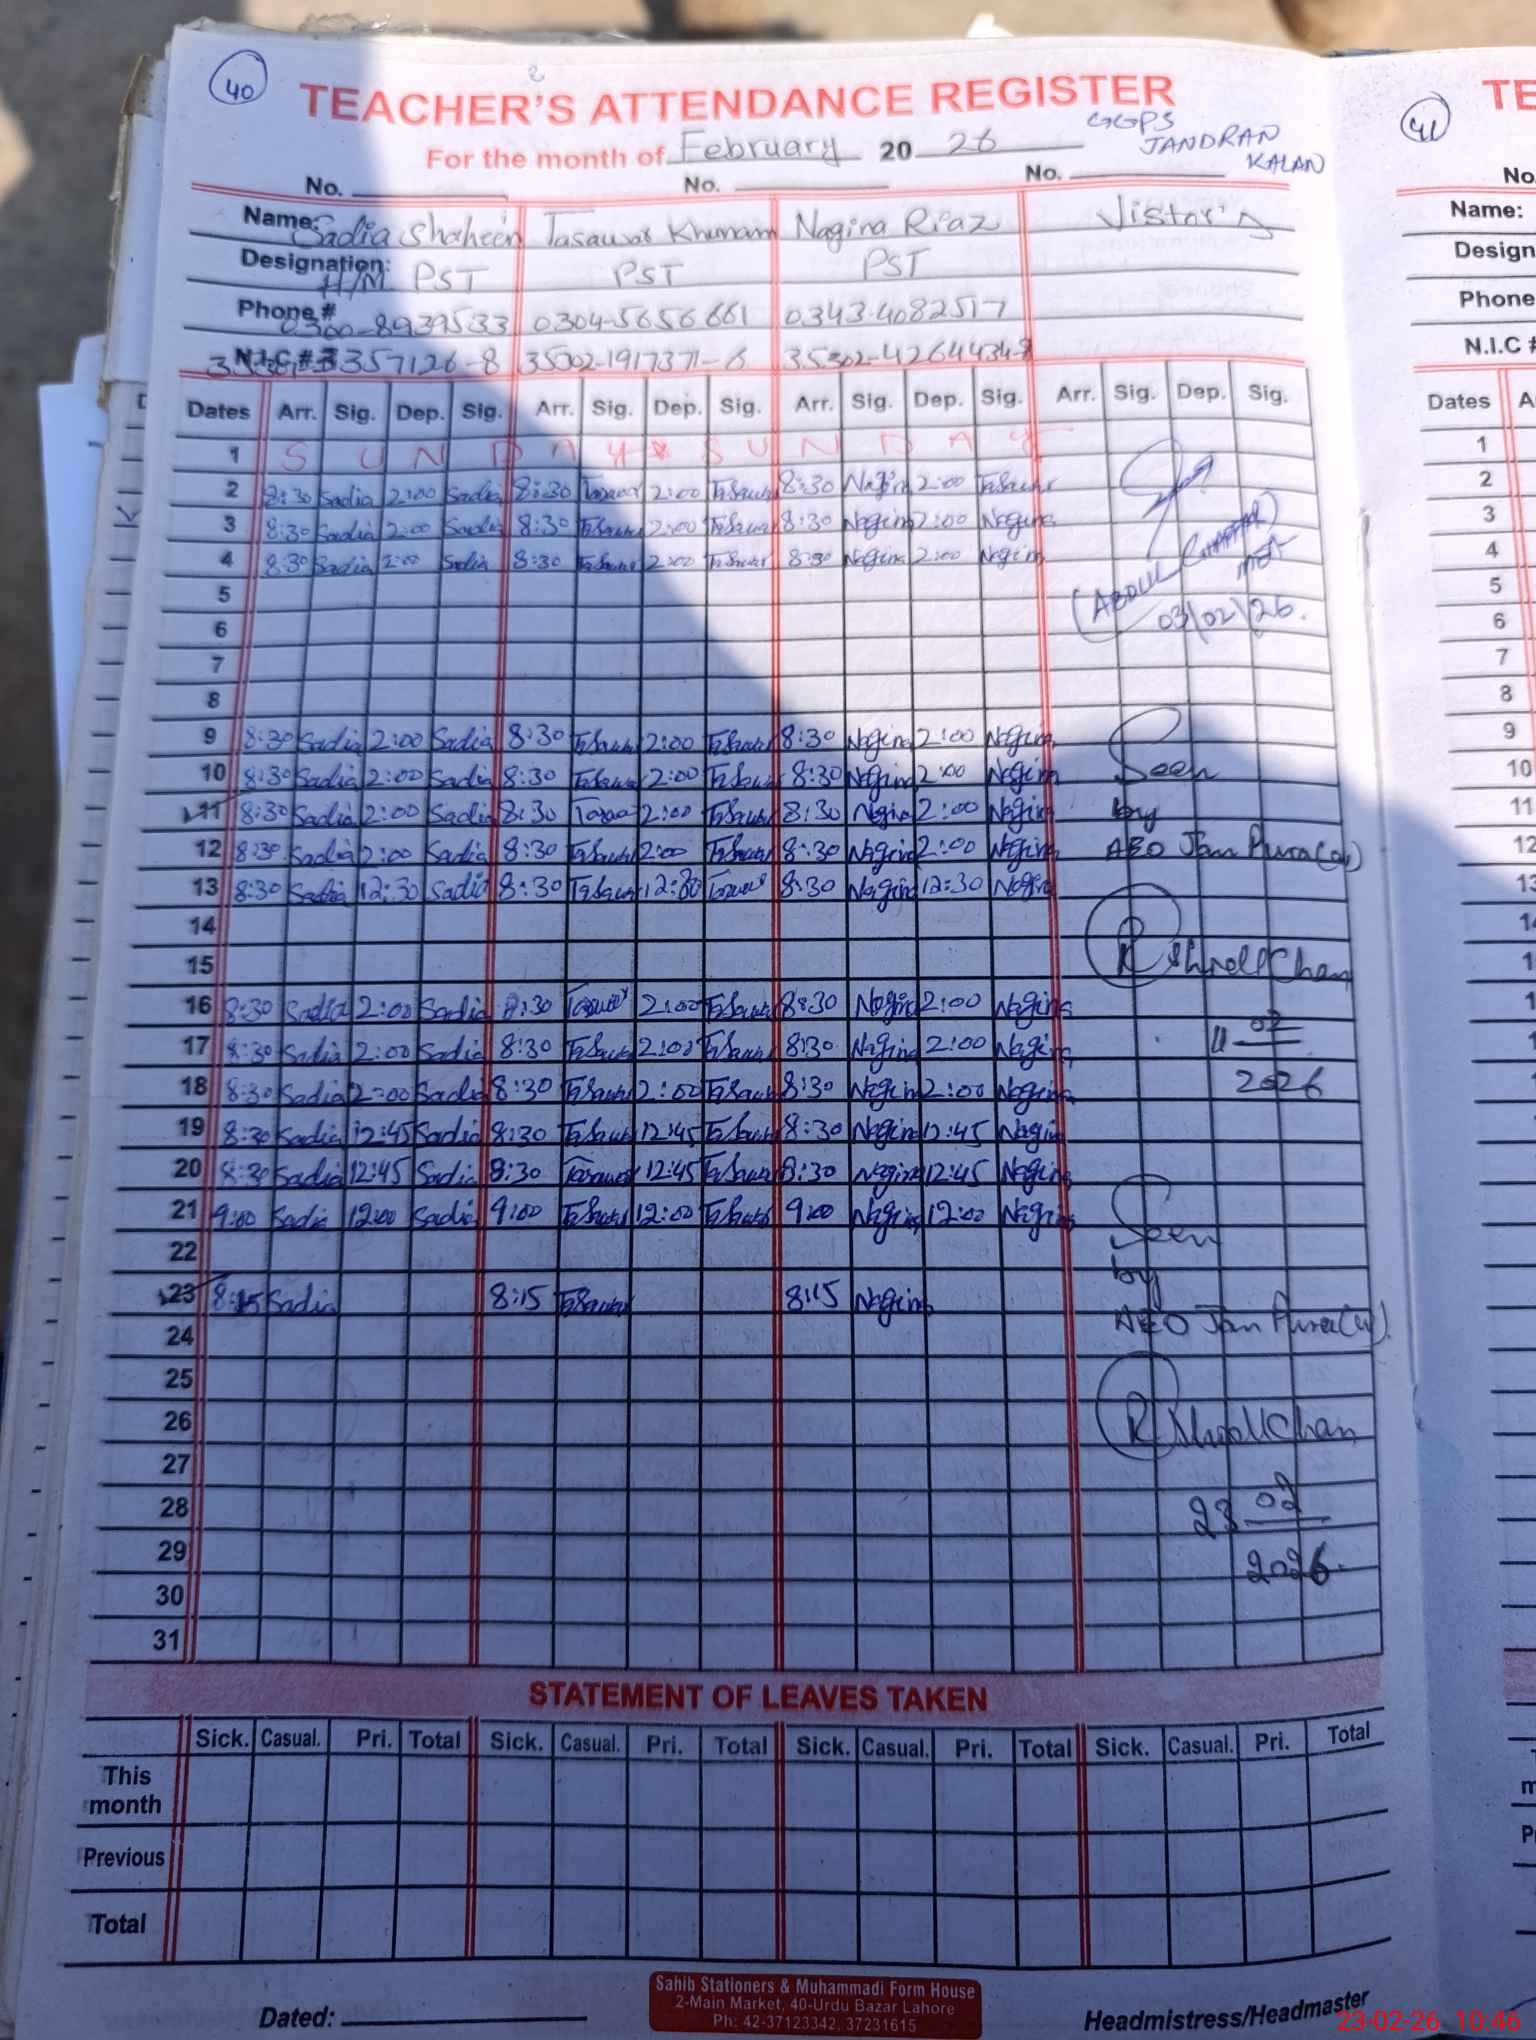 40
TEACHER'S ATTENDANCE REGISTER
For the month of February 20 26
GGPS
JANDRAN
KALAN
No. No. No.
Name: Sadia Shaheen Tasawar Khunam Nagina Riaz Vistor's
Designation: H/M PST PST PST
Phone # 0300-8939533 0304-5656661 0343-4082517
N.I.C # 357126-8 35002-1917371-6
Dates Arr. Sig. Dep. Sig. Arr. Sig. Dep. Sig. Arr. Sig. Dep. Sig. Arr. Sig. Dep. Sig.
1 S U N D A Y * S U N D A Y
2 8:30 Sadia 2:00 Sadia 8:30 Tasawar 2:00 Tasawar 8:30 Nagina 2:00 Tasawar
3 8:30 Sadia 2:00 Sadia 8:30 Tasawar 2:00 Tasawar 8:30 Nagina 2:00 Nagina
4 8:30 Sadia 2:00 Sadia 8:30 Tasawar 2:00 Tasawar 8:30 Nagina 2:00 Nagina
5
(ABDUL GHAFFAR)
6
03/02/26.
7
8
9 8:30 Sadia 2:00 Sadia 8:30 Tasawar 2:00 Tasawar 8:30 Nagina 2:00 Nagina
10 8:30 Sadia 2:00 Sadia 8:30 Tasawar 2:00 Tasawar 8:30 Nagina 2:00 Nagina Seen
11 8:30 Sadia 2:00 Sadia 8:30 Tasawar 2:00 Tasawar 8:30 Nagina 2:00 Nagina by
12 8:30 Sadia 2:00 Sadia 8:30 Tasawar 2:00 Tasawar 8:30 Nagina 2:00 Nagina AEO Jan Pura
13 8:30 Sadia 12:30 Sadia 8:30 Tasawar 12:30 Tasawar 8:30 Nagina 12:30 Nagina
14
15
16 8:30 Sadia 2:00 Sadia 8:30 Tasawar 2:00 Tasawar 8:30 Nagina 2:00 Nagina
17 8:30 Sadia 2:00 Sadia 8:30 Tasawar 2:00 Tasawar 8:30 Nagina 2:00 Nagina 11 02
18 8:30 Sadia 2:00 Sadia 8:30 Tasawar 2:00 Tasawar 8:30 Nagina 2:00 Nagina 2026
19 8:30 Sadia 12:45 Sadia 8:30 Tasawar 12:45 Tasawar 8:30 Nagina 12:45 Nagina
20 8:30 Sadia 12:45 Sadia 8:30 Tasawar 12:45 Tasawar 8:30 Nagina 12:45 Nagina
21 9:00 Sadia 12:00 Sadia 9:00 Tasawar 12:00 Tasawar 9:00 Nagina 12:00 Nagina Seen
22 by
23 8:15 Sadia 8:15 Tasawar 8:15 Nagina
24 AEO Jan Pura
25
26
27
28 23 02
29 2026
30
31
STATEMENT OF LEAVES TAKEN
Sick. Casual. Pri. Total Sick. Casual. Pri. Total Sick. Casual. Pri. Total Sick. Casual. Pri. Total
This
month
Previous
Total
Dated:
Sahib Stationers & Muhammadi Form House
2-Main Market, 40-Urdu Bazar Lahore
Ph: 42-37123342, 37231615
Headmistress/Headmaster
23-02-26 10:46
41
TE
No
Name:
Design
Phone
N.I.C #
Dates A
1
2
3
4
5
6
7
8
9
10
11
12
13